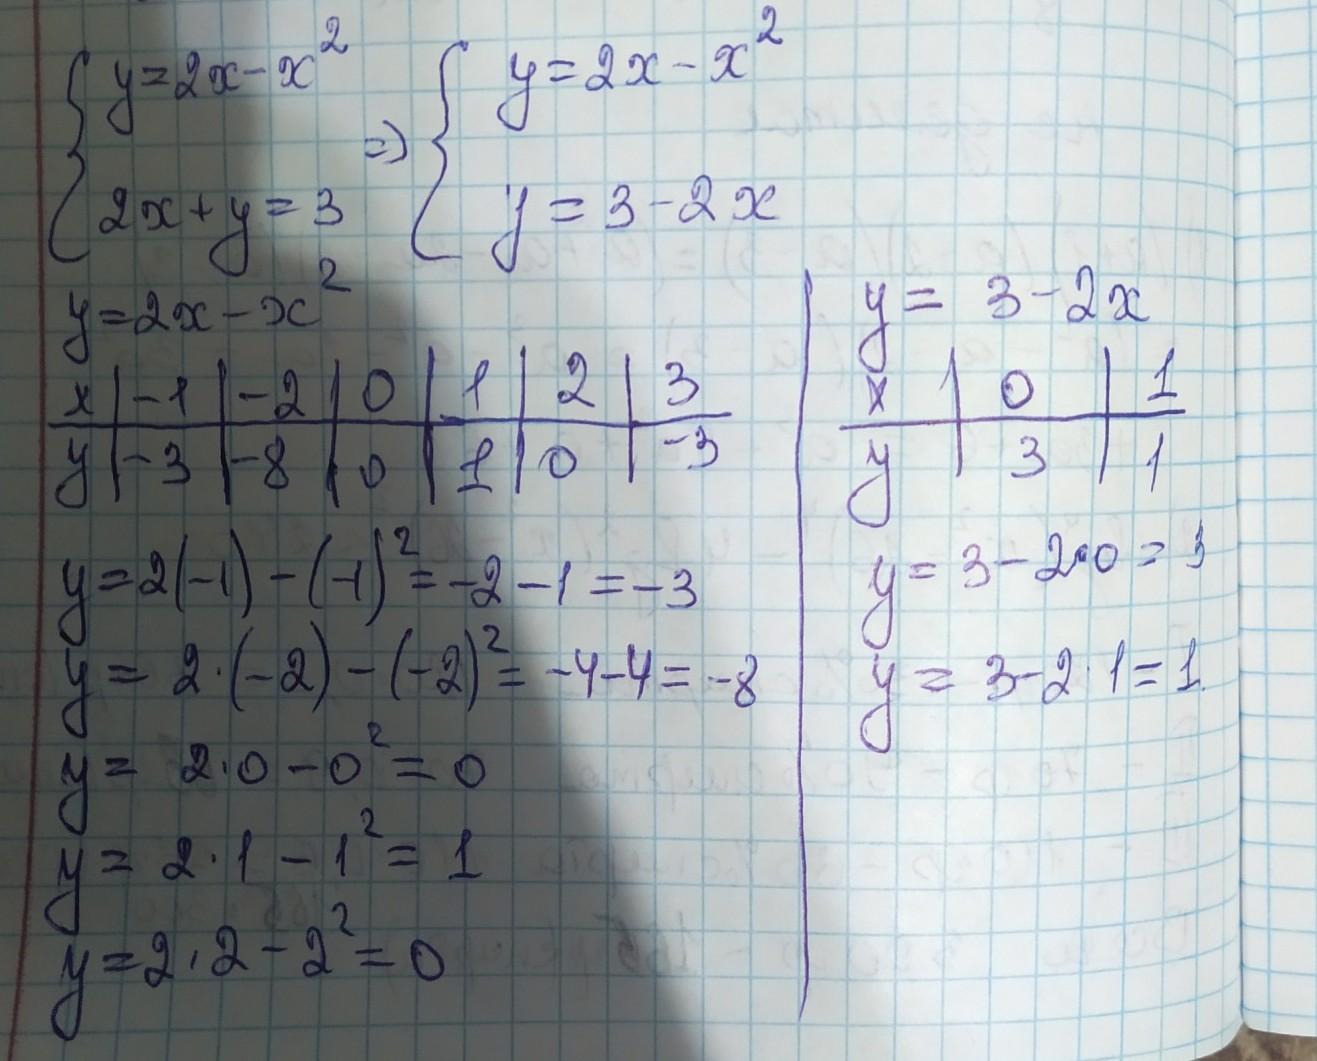 { y = 2x - x² => { y = 2x - x²
{ 2x + y = 3 { y = 3 - 2x
y = 2x - x²
x | -1 | -2 | 0 | 1 | 2 | 3
y | -3 | -8 | 0 | 1 | 0 | -3
y = 2(-1) - (-1)² = -2 - 1 = -3
y = 2·(-2) - (-2)² = -4-4 = -8
y = 2·0 - 0² = 0
y = 2·1 - 1² = 1
y = 2·2 - 2² = 0
y = 3 - 2x
x | 0 | 1
y | 3 | 1
y = 3 - 2·0 = 3
y = 3-2·1 = 1